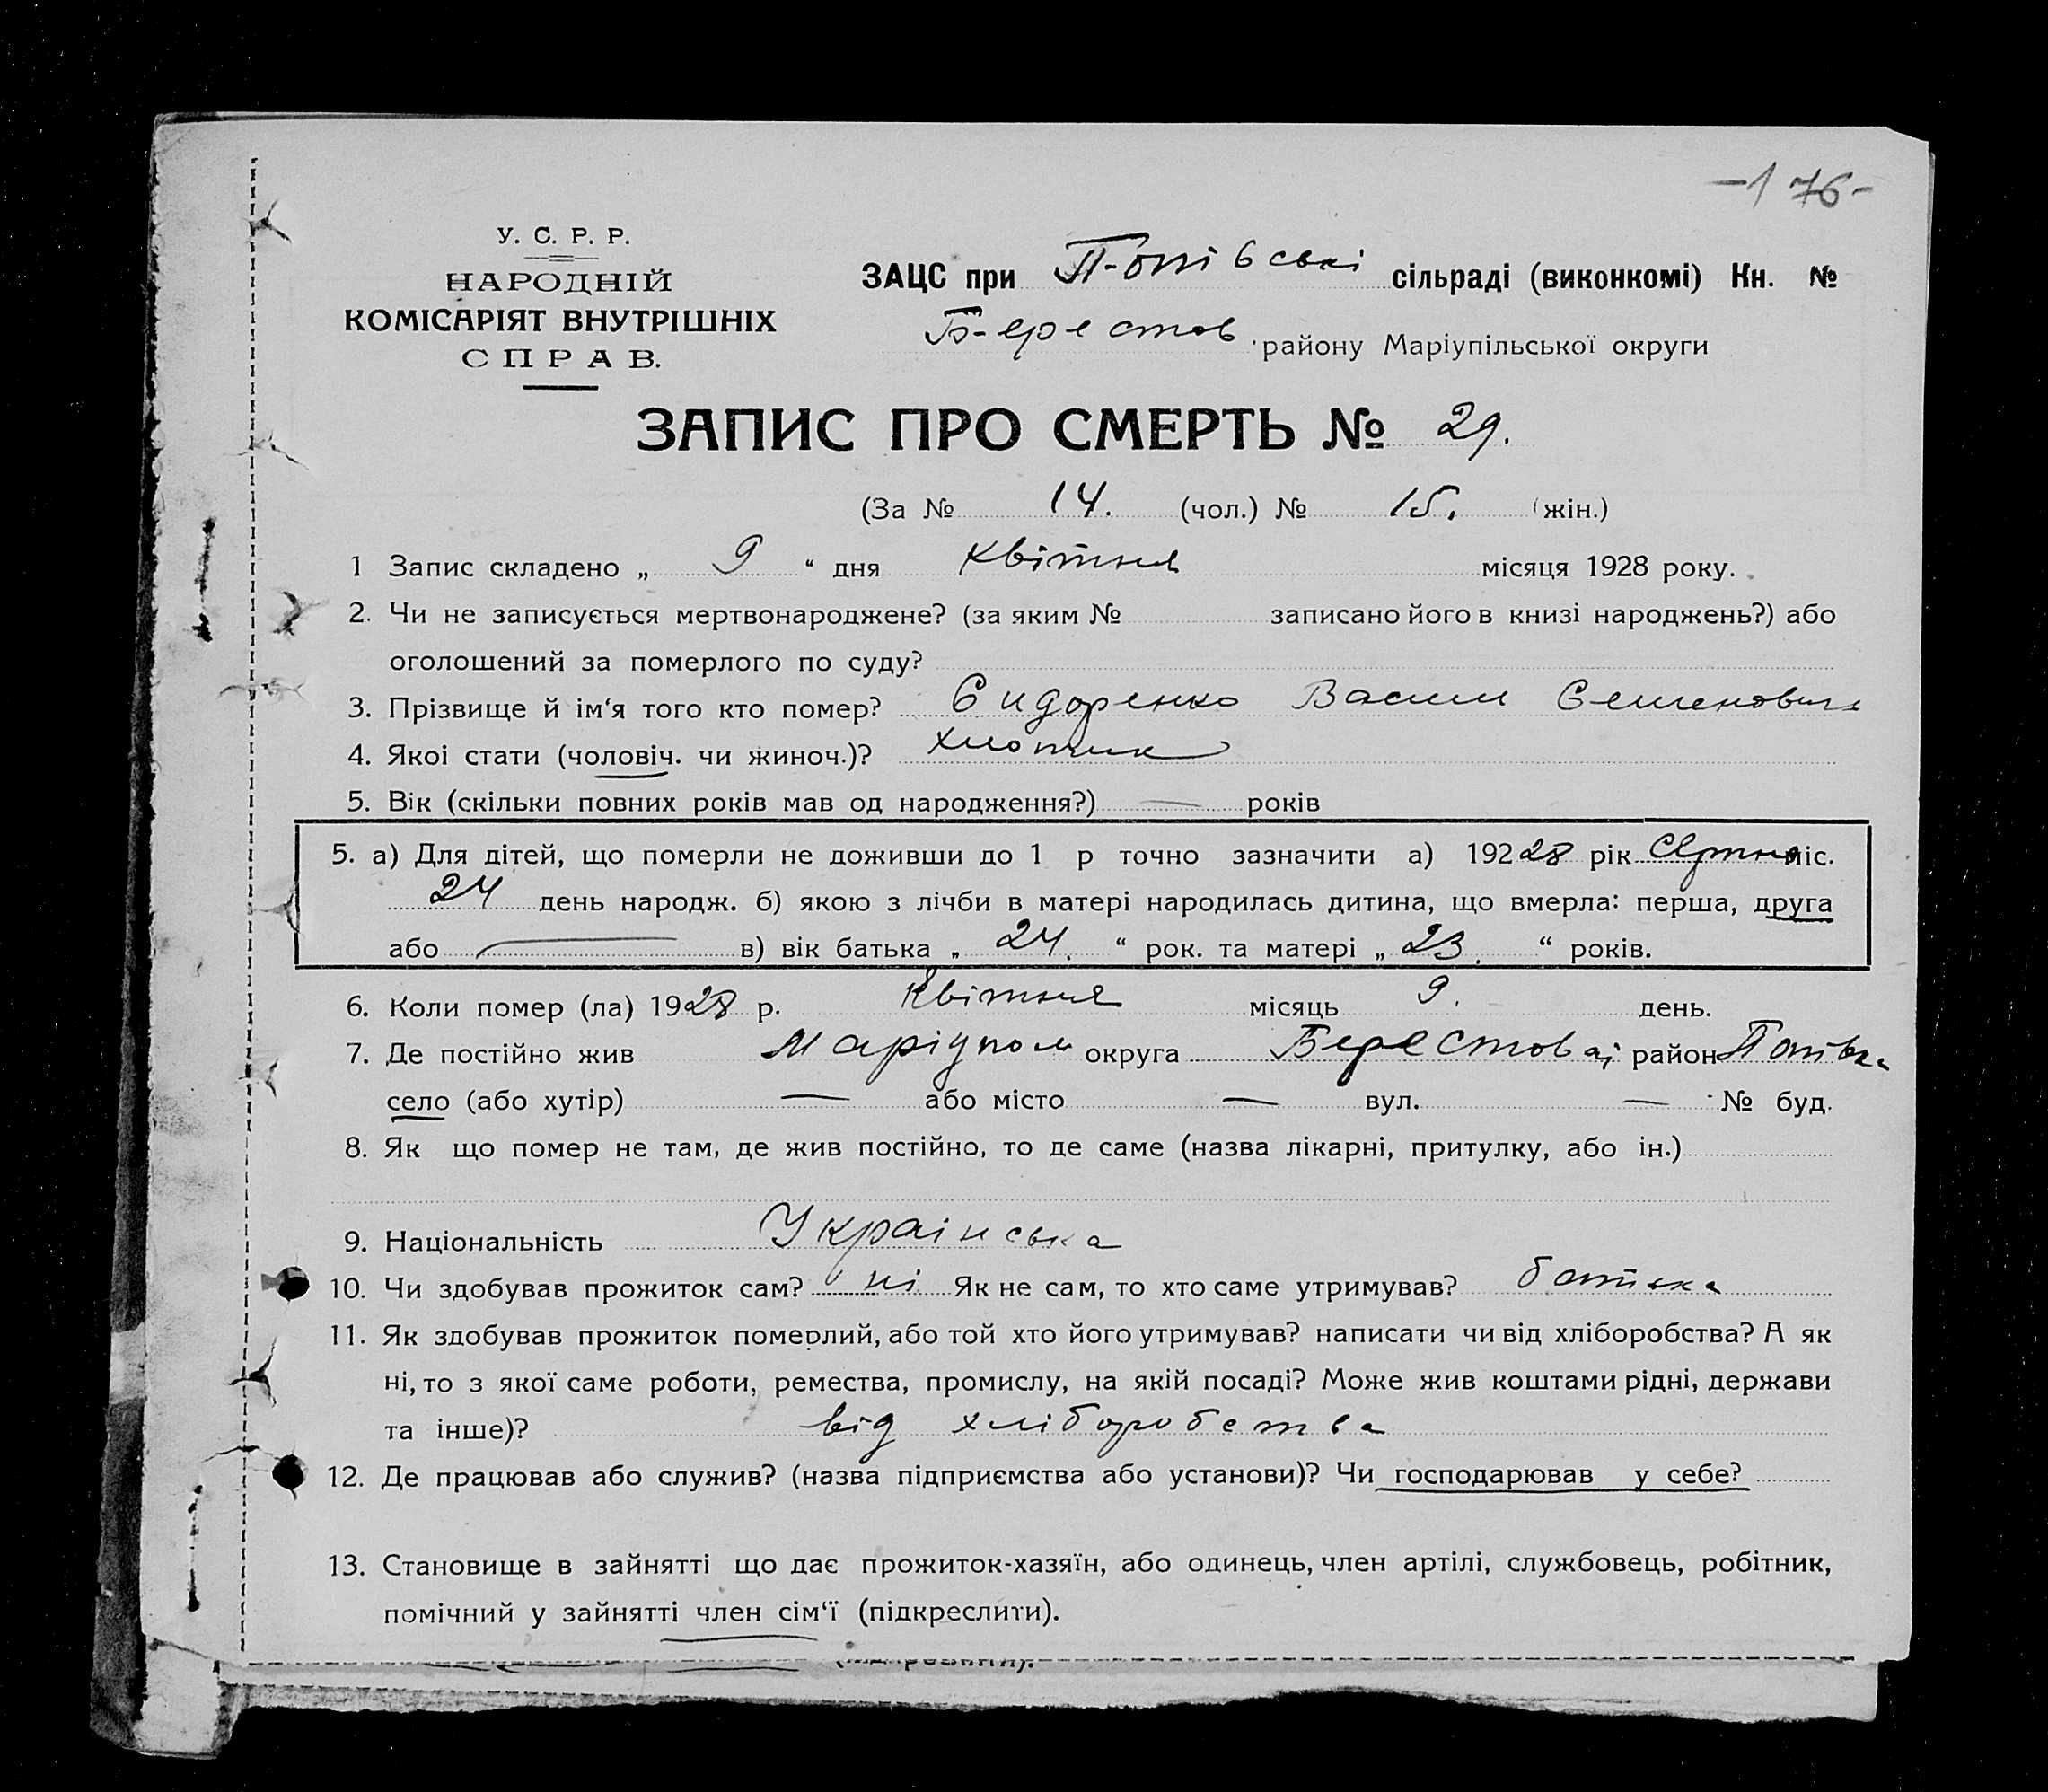 -176-
У. С. Р. Р.
НАРОДНІЙ
КОМІСАРІЯТ ВНУТРІШНІХ
СПРАВ.
ЗАЦС при П-опівські сільраді (виконкомі) Кн. №
Б-ерестов. району Маріупільської округи
ЗАПИС ПРО СМЕРТЬ № 29.
(За № 14. (чол.) № 15. (жін.)
1 Запис складено „ 9 “ дня квітня місяця 1928 року.
2. Чи не записується мертвонароджене? (за яким № записано його в книзі народжень?) або
оголошений за померлого по суду?
3. Прізвище й ім‘я того кто помер? Сидоренко Васил Семенович
4. Якоі стати (чоловіч. чи жиноч.)? хлопчик
5. Вік (скільки повних років мав од народження?) — років
5. а) Для дітей, що померли не доживши до 1 р точно зазначити а) 19228 рік Серпня міс.
24 день народж. б) якою з лічби в матері народилась дитина, що вмерла: перша, друга
або — в) вік батька „ 24. “ рок. та матері „ 23. “ років.
6. Коли помер (ла) 1928 р. Квітня місяць 9. день.
7. Де постійно жив Маріупол округа Берестовај район Попівка
село (або хутір) — або місто — вул. — № буд.
8. Як що помер не там, де жив постійно, то де саме (назва лікарні, притулку, або ін.)
9. Національність Українська
10. Чи здобував прожиток сам? ні Як не сам, то хто саме утримував? батька
11. Як здобував прожиток померлий, або той хто його утримував? написати чи від хліборобства? А як
ні, то з якої саме роботи, ремества, промислу, на якій посаді? Може жив коштами рідні, держави
та інше)? від хліборобства
12. Де працював або служив? (назва підприємства або установи)? Чи господарював у себе?
13. Становище в зайнятті що дає прожиток-хазяїн, або одинець, член артілі, службовець, робітник,
помічний у зайнятті член сім‘ї (підкреслити).